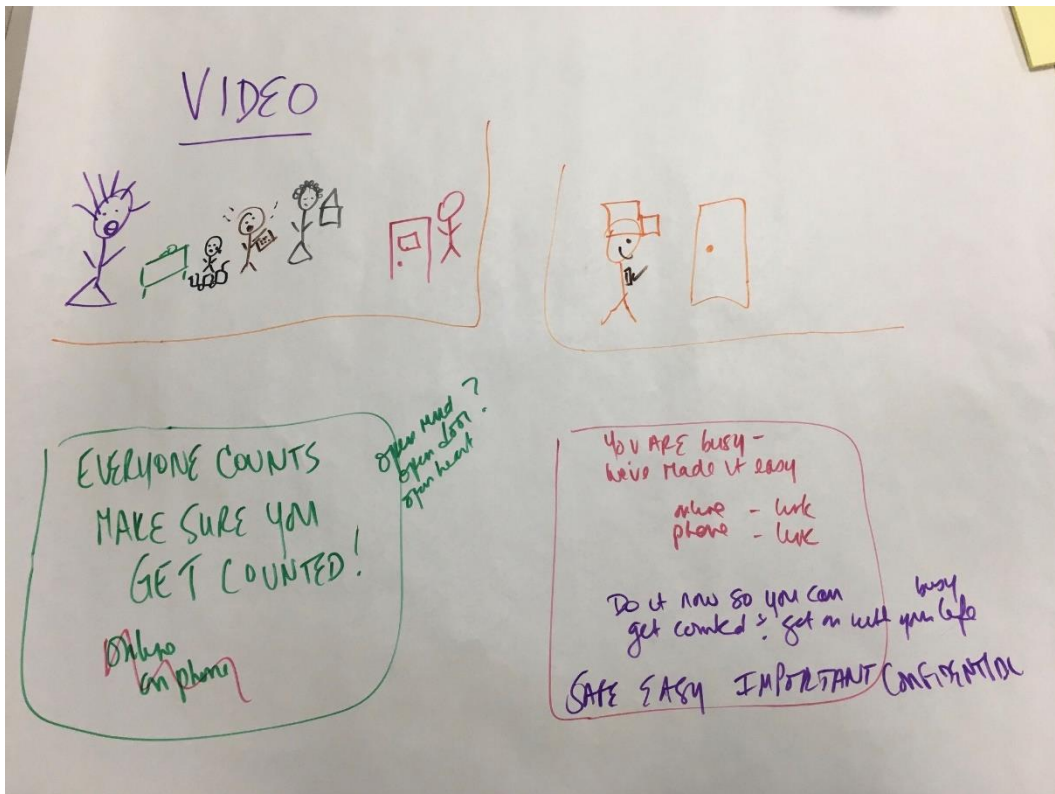 VIDEO
EVERYONE COUNTS
MAKE SURE YOU
GET COUNTED!
online
on phone
open mind ?
open door .
open heart
YOU ARE busy -
we've made it easy
online - link
phone - link
Do it now so you can
get counted & get on with your busy life
SAFE EASY IMPORTANT CONFIDENTIAL